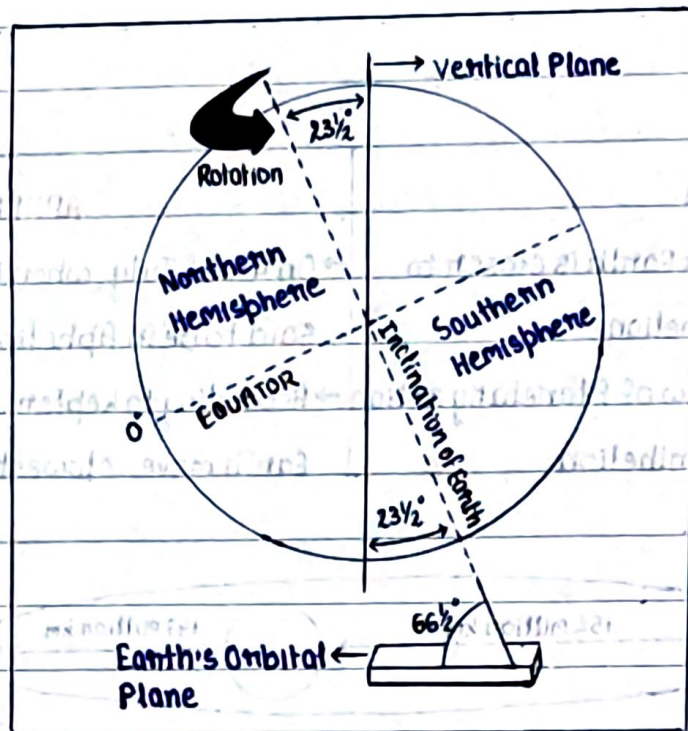 → Vertical Plane
23½°
Rotation
Northern
Hemisphere
Southern
Hemisphere
Inclination of Earth
EQUATOR
0°
23½°
66½°
Earth's Orbital ←
Plane